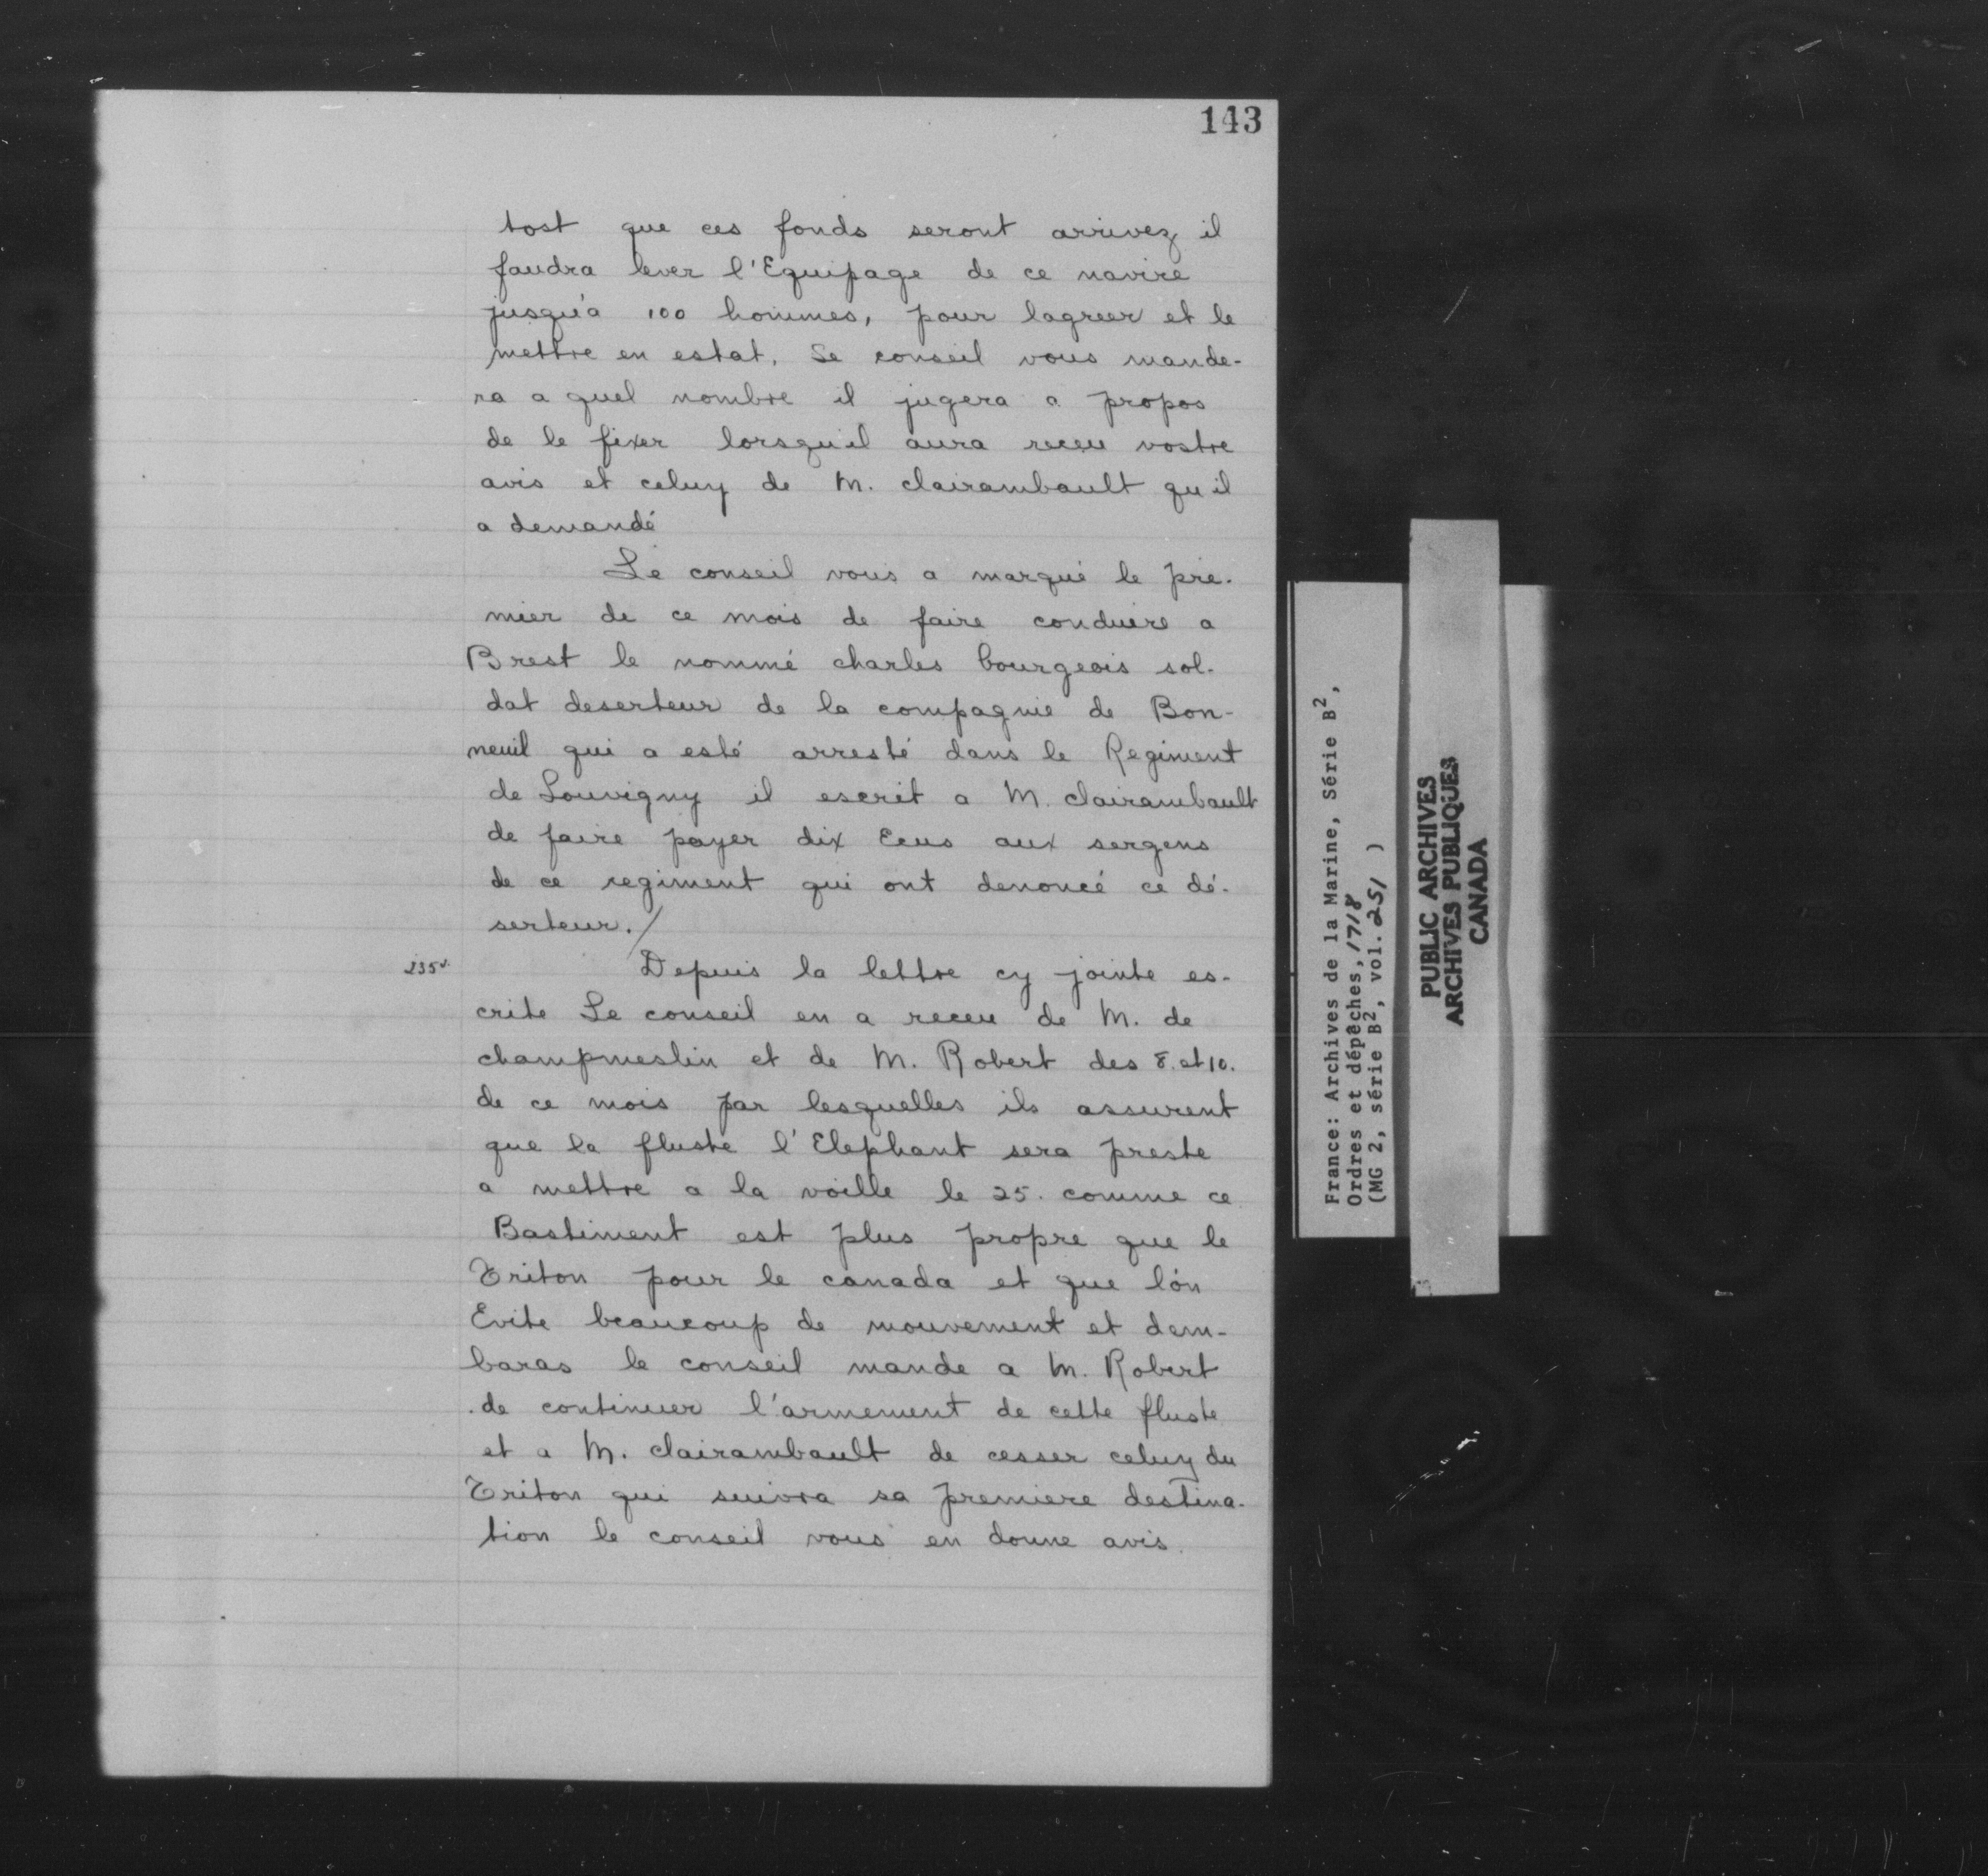 143
tost que ces fonds seront arrivez il
faudra lever l'Equipage de ce navire
jusqu'a 100 hommes, pour lagreer et le
mettre en estat. Le conseil vous mande-
ra a quel nombre il jugera a propos
de le fixer lorsqu'il aura receu vostre
avis et celuy de M. clairambault qu'il
a demandé
Le conseil vous a marqué le pre-
mier de ce mois de faire conduire a
Brest le nommé charles bourgeois sol-
dat deserteur de la compagnie de Bon-
neuil qui a esté arresté dans le Regiment
de Louvigny il escrit a M. clairambault
de faire payer dix Ecus aux sergens
de ce regiment qui ont denoncé ce dé-
serteur./
235v.
Depuis la lettre cy jointe es-
crite Le conseil en a receu de M. de
champmeslin et de M. Robert des 8. et 10.
de ce mois par lesquelles ils assurent
que la fluste l'Elephant sera preste
a mettre a la voille le 25. comme ce
Bastiment est plus propre que le
Triton pour le canada et que l'on
Evite beaucoup de mouvement et dem-
baras le conseil mande a M. Robert
de continuer l'armement de cette fluste
et a M. clairambault de cesser celuy du
Triton qui suivra sa premiere destina-
tion le conseil vous en donne avis.
France: Archives de la Marine, Série B2,
Ordres et dépêches, 1718
(MG 2, série B2, vol. 251 )
PUBLIC ARCHIVES
ARCHIVES PUBLIQUES
CANADA